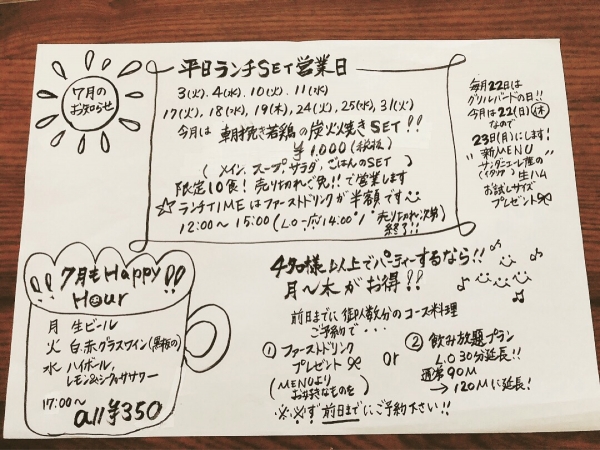 7月の
お知らせ
平日ランチSET営業日
3(火), 4(水), 10(火), 11(水)
17(火), 18(水), 19(木), 24(火), 25(水), 31(火)
今月は 朝挽き若鶏の炭火焼きSET!!
¥1,000(税抜)
(メイン、スープ、サラダ、ごはんのSET)
限定10食! 売り切れご免!!で営業します
☆ランチTIMEはファーストドリンクが半額です
12:00〜15:00(L.O 14:00 売り切れ次第
終了!!
毎月22日は
グリルバードの日!!
今月は22(日)休
なので
23日(月)にします!
"新MENU
サンダニエーレ産の
(イタリア)生ハム
お試しサイズ
プレゼント
!!7月もHappy!!
Hour
月 生ビール
火 白・赤グラスワイン(黒板の)
水 ハイボール、
レモン&シークヮサーサワー
17:00〜
all ¥350
4名様以上でパーティーするなら!!
月〜木がお得!!
前日までに御人数分のコース料理
ご予約で・・・
① ファーストドリンク
プレゼント
(MENUより
お好きなものを)
or
② 飲み放題プラン
L.O 30分延長!!
通常90M
→120Mに延長!
※必ず前日までにご予約下さい!!